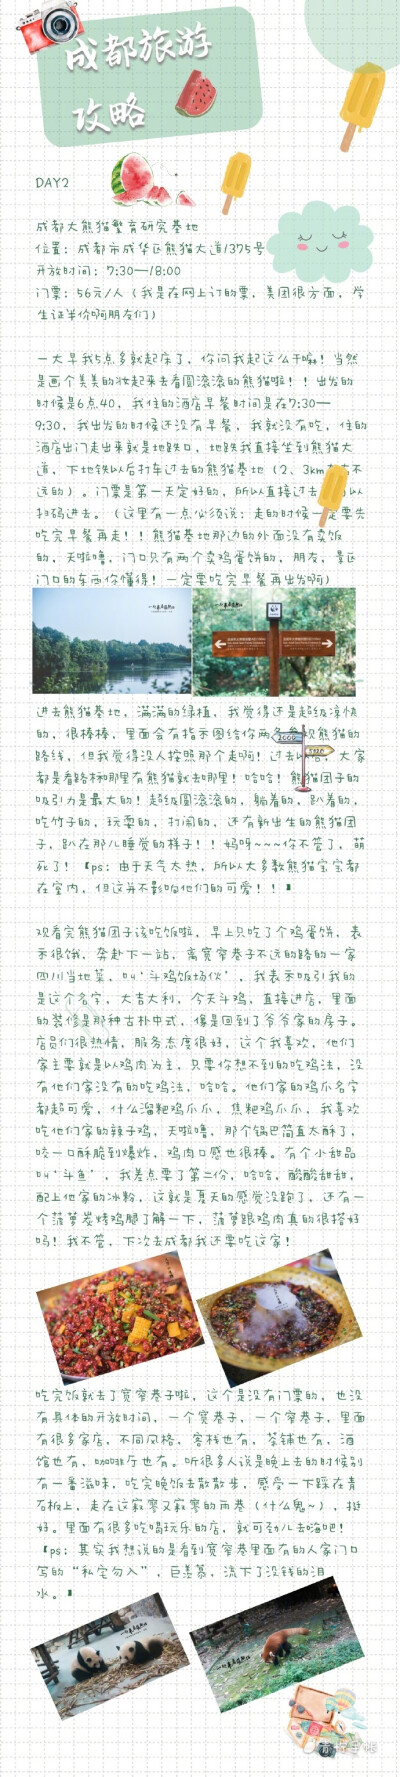 成都旅游
攻略
DAY2
成都大熊猫繁育研究基地
位置：成都市成华区熊猫大道1375号
开放时间：7:30—18:00
门票：56元/人（我是在网上订的票，美团很方面，学
生证半价啊朋友们）
一大早我5点多就起床了，你问我起这么干嘛！当然
是画个美美的妆起来去看圆滚滚的熊猫啦！！出发的
时候是6点40，我住的酒店早餐时间是在7:30—
9:30，我出发的时候还没有早餐，我就没有吃，住的
酒店出门走出来就是地铁口，地铁我直接坐到熊猫大
道，下地铁以后打车过去的熊猫基地（2、3km 不
远的）。门票是第一天定好的，所以直接过去 以
扫码进去。（这里有一点必须说：走的时候一定要先
吃完早餐再走！！熊猫基地那边的外面没有卖饭
的，天啦噜，门口只有两个卖鸡蛋饼的，朋友，景区
门口的东西你懂得！一定要吃完早餐再出发啊）
进去熊猫基地，满满的绿植，我觉得还是超级凉快
的，很棒棒，里面会有指示图给你两条 观熊猫的
路线，但我觉得没人按照那个走啊！过去以后，大家
都是看路标哪里有熊猫就去哪里！哈哈！熊猫团子的
吸引力是最大的！超级圆滚滚的，躺着的，趴着的，
吃竹子的，玩耍的，打闹的，还有新出生的熊猫团
子，趴在那儿睡觉的样子！！妈呀~~~你不管了，萌
死了！【ps：由于天气太热，所以大多数熊猫宝宝都
在室内，但这并不影响他们的可爱！！】
观看完熊猫团子该吃饭啦，早上只吃了个鸡蛋饼，表
示很饿，奔赴下一站，离宽窄巷子不远的路的一家
四川当地菜、叫‘斗鸡饭场伙’，我表示吸引我的
是这个名字，大吉大利，今天斗鸡，直接进店，里面
的装修是那种古朴中式，像是回到了爷爷家的房子。
店员们很热情，服务态度很好，这个我喜欢，他们
家主要就是以鸡肉为主，只要你想不到的吃鸡法，没
有他们家没有的吃鸡法，哈哈。他们家的鸡爪名字
都超可爱，什么溜粑鸡爪爪，焦粑鸡爪爪，我喜欢
吃他们家的辣子鸡，天啦噜，那个锅巴简直太酥了，
咬一口酥脆到爆炸，鸡肉口感也很棒。有个小甜品
叫‘斗鱼’，我差点要了第二份，哈哈，酸酸甜甜，
配上他家的冰粉，这就是夏天的感觉没跑了，还有一
个菠萝炭烤鸡腿了解一下，菠萝跟鸡肉真的很搭好
吗！我不管，下次去成都我还要吃这家！
吃完饭就去了宽窄巷子啦，这个是没有门票的，也没
有具体的开放时间，一个宽巷子，一个窄巷子，里面
有很多家店，不同风格，客栈也有，茶铺也有，酒
馆也有，咖啡厅也有。听很多人说是晚上去的时候别
有一番滋味，吃完晚饭去散散步，感受一下踩在青
石板上，走在这寂寥又寂寥的雨巷（什么鬼~），挺
好。里面有很多吃喝玩乐的店，就可劲儿去嗨吧！
【ps：其实我想说的是看到宽窄巷里面有的人家门口
写的“私宅勿入”，巨羡慕，流下了没钱的泪
水。】